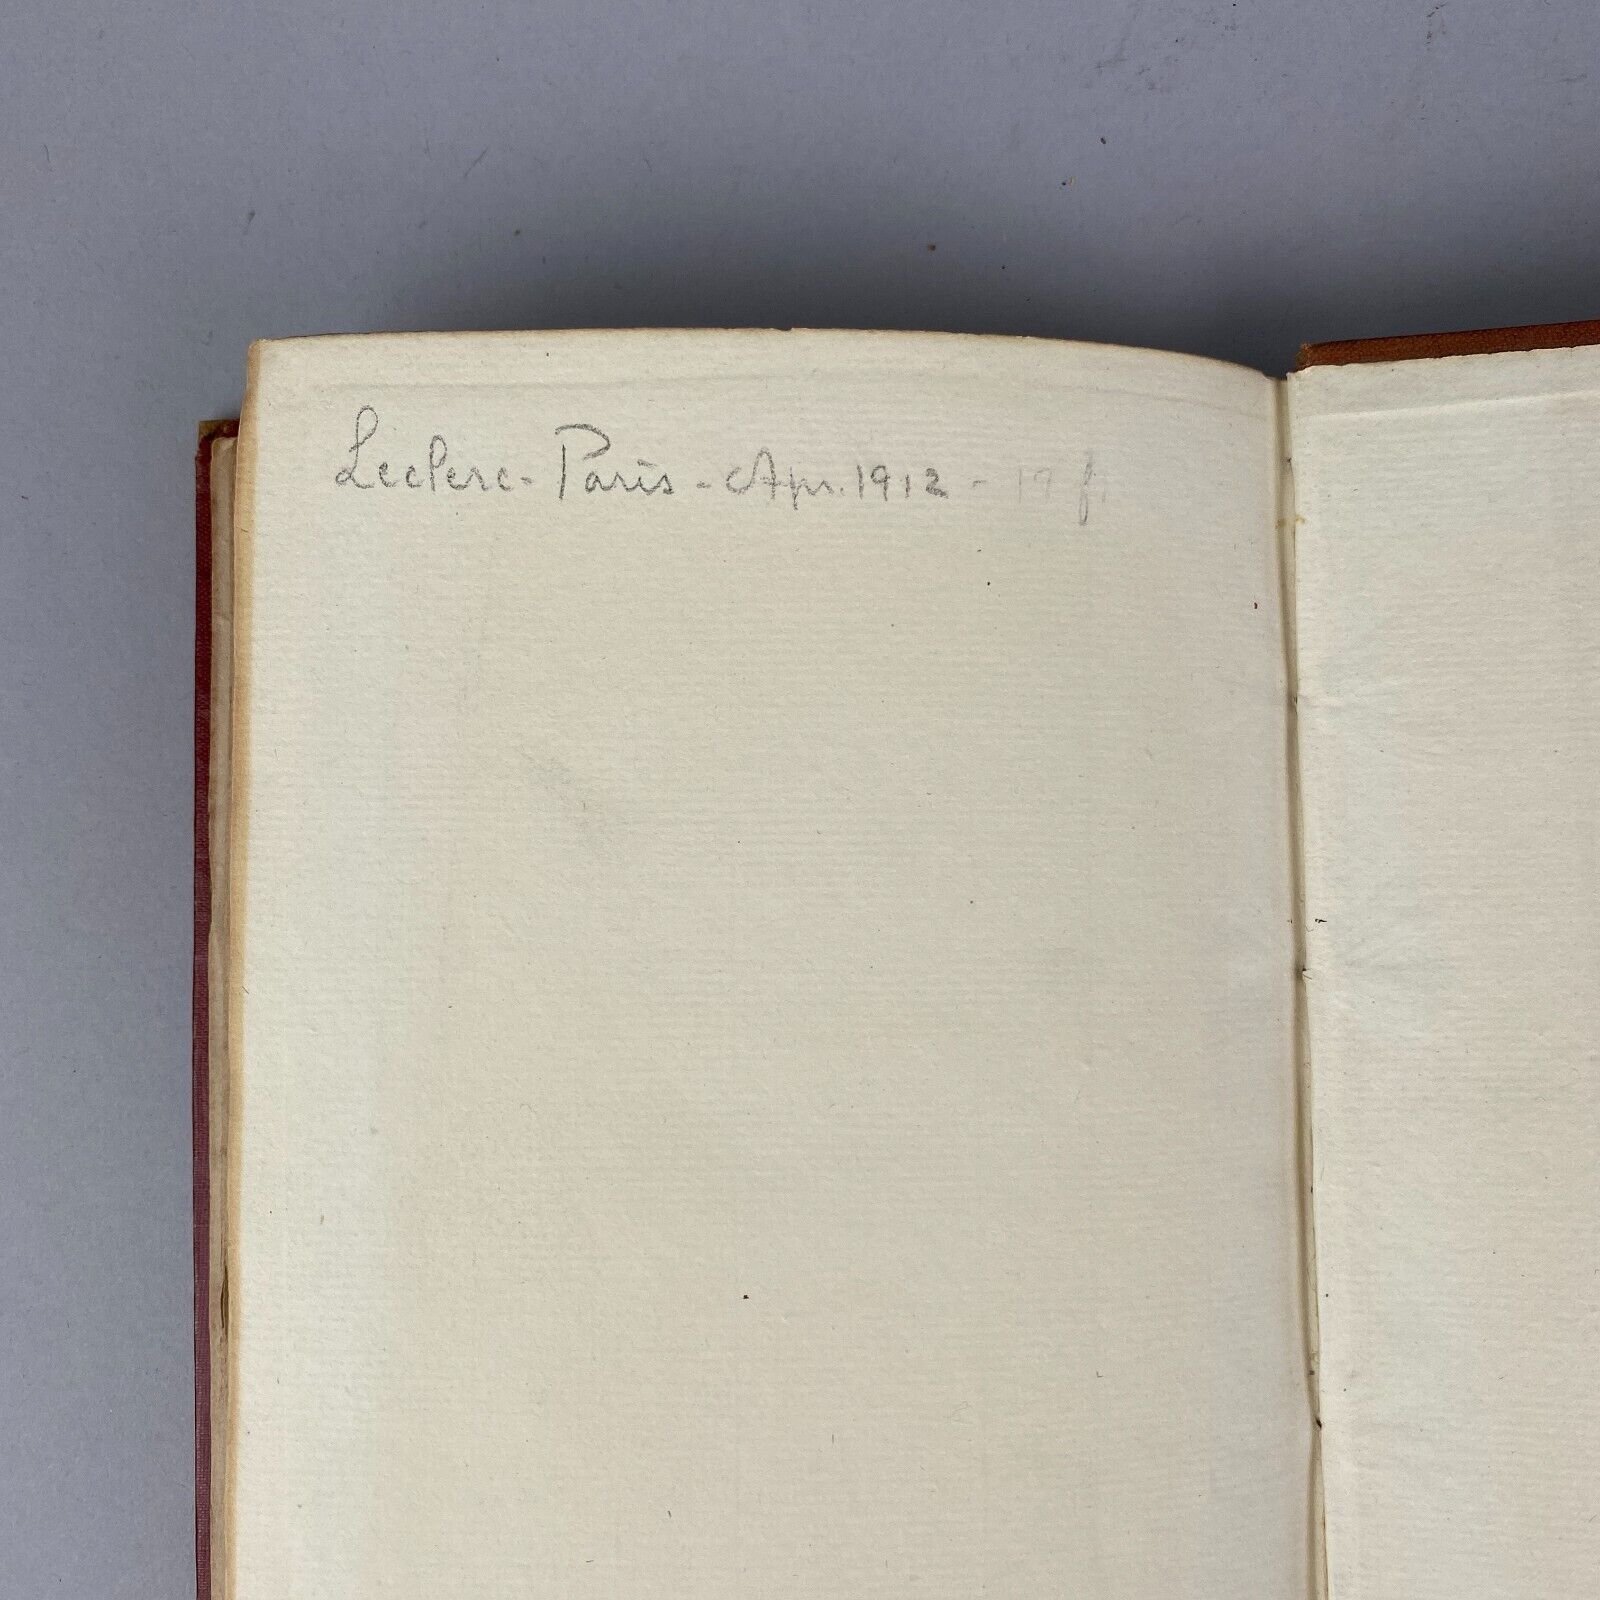 Leclerc - Paris - Apr. 1912 - 19 f.